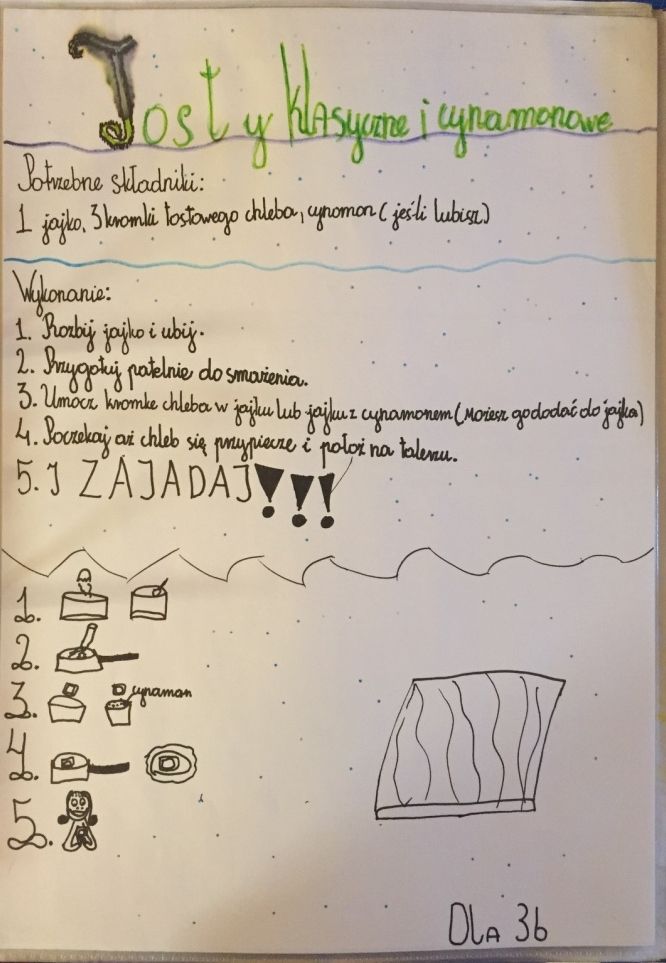 Tosty klasyczne i cynamonowe
Potrzebne składniki:
1 jajko, 3 kromki tostowego chleba, cynomon (jeśli lubisz)
Wykonanie:
1. Rozbij jajko i ubij.
2. Przygotuj patelnie do smażenia.
3. Umocz kromke chleba w jajku lub jajku z cynamonem (Możesz go dodać do jajka)
4. Poczekaj aż chleb się przypiecze i połoź na talerzu.
5. I ZAJADAJ!!!
1.
2.
3. cynamon
4.
5.
Dla 3b